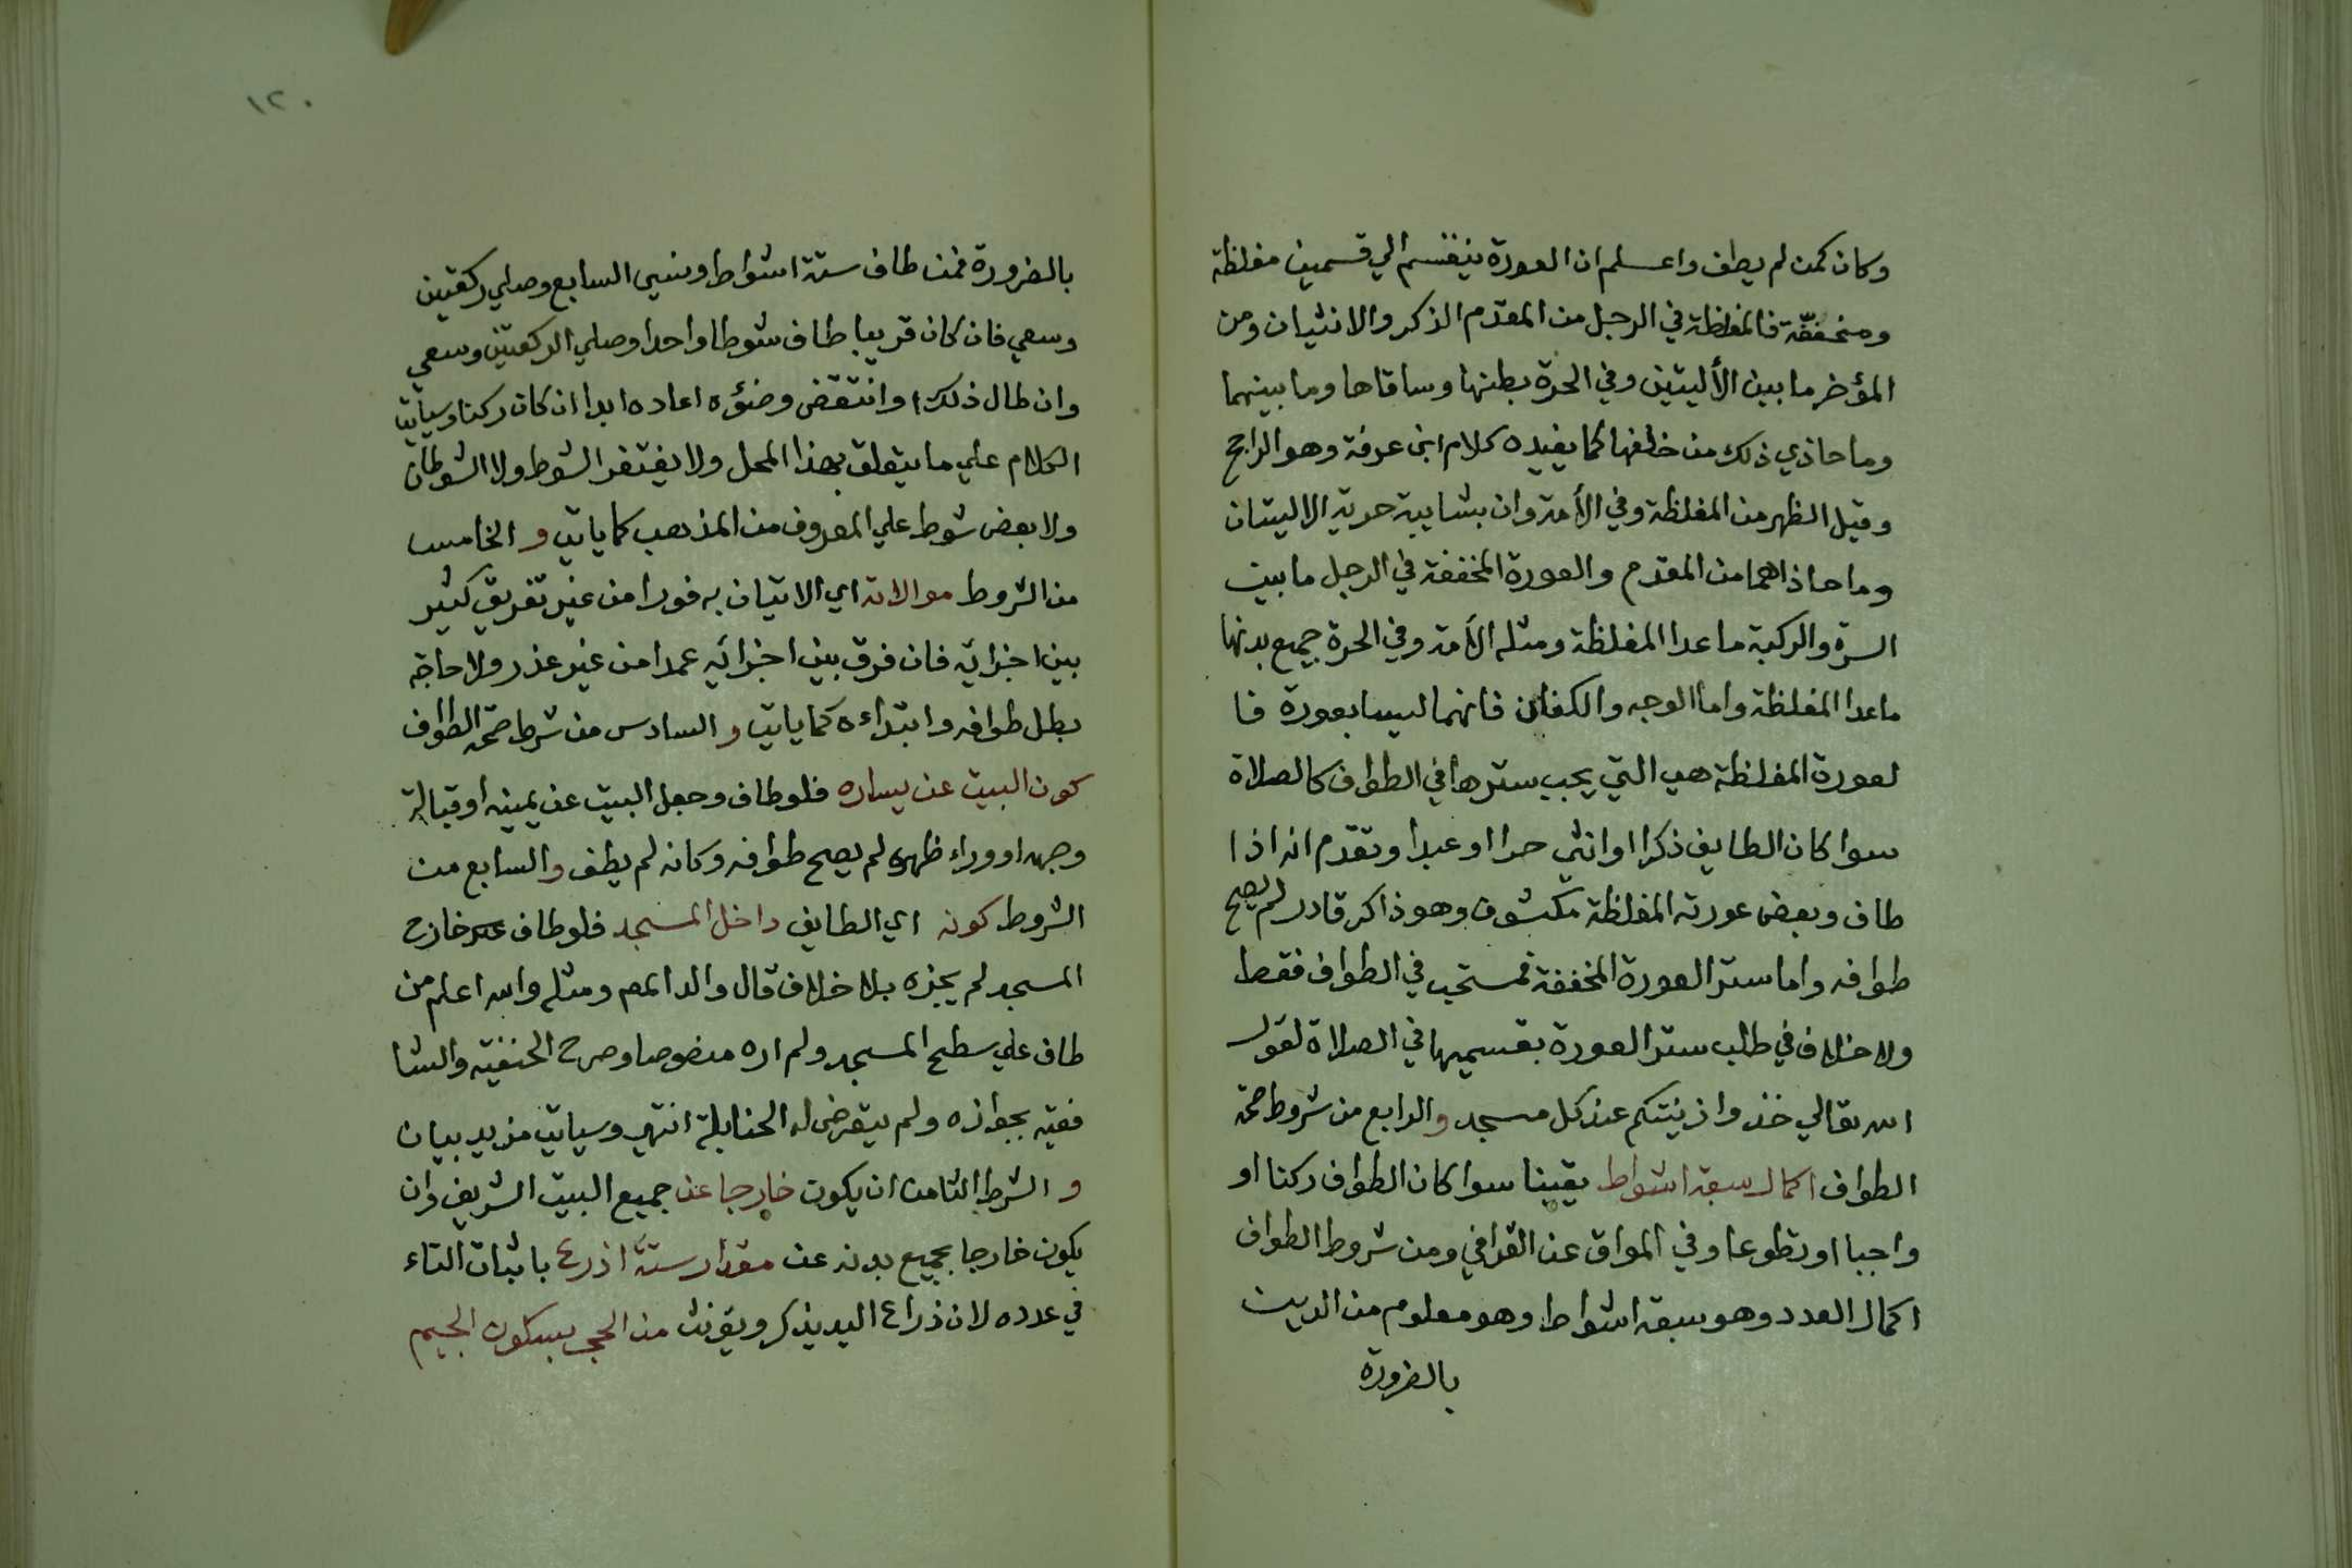 وكان كمن لم يطف واعلم ان العورة ينقسم الي قسمين مغلظة
ومخففة فالمغلظة في الرجل من المقدم الذكر والانثيان ومن
المؤخر ما بين الأليتين وفي الحرة بطنها وساقاها وما بينهما
وما حاذي ذلك من خلفها كما يفيده كلام ابن عرفة وهو الراجح
وقيل الظهر من المغلظة وفي الأمة وان بشايبة حرية الاليتان
وما حاذاهما من المقدم والعورة المخففة في الرجل ما بين
السرة والركبة ما عدا المغلظة ومثله الأمة وفي الحرة جميع بدنها
ما عدا المغلظة واما الوجه والكفان فانهما ليسا بعورة فا
لعورة المغلظة هي التي يجب سترها في الطواف كالصلاة
سوا كان الطايف ذكرا او انثي حرا او عبدا وتقدم انه اذا
طاف وبعض عورته المغلظة مكشوف وهو ذاكر قادر لم يصح
طوافه واما ستر العورة المخففة فمستحب في الطواف فقط
ولا خلاف في طلب ستر العورة بقسميها في الصلاة لقول
الله تعالي خذوا زينتكم عند كل مسجد والرابع من شروط صحة
الطواف اكمال سبعة اشواط يقينا سوا كان الطواف ركنا او
واجبا او تطوعا وفي المواق عن القرافي ومن شروط الطواف
اكمال العدد وهو سبعة اشواط وهو معلوم من الدين
بالضرورة
١٢٠
بالضرورة فمن طاف ستة اشواط ونسي السابع وصلي ركعتين
وسعي فان كان قريبا طاف شوطا واحدا وصلي الركعتين وسعي
وان طال ذلك او انتقض وضؤه اعاده ابدا ان كان ركنا وسياتي
الكلام علي ما يتعلق بهذا المحل ولا يغتفر الشوط ولا الشوطان
ولا بعض شوط علي المعروف من المذهب كما ياتي و الخامس
من الشروط موالاته اي الاتيان به فورا من غير تفريق كثير
بين اجزائه فان فرق بين اجزائه عمدا من غير عذر ولا حاجة
بطل طوافه وابتداءه كما ياتي و السادس من شرط صحة الطواف
كون البيت عن يساره فلو طاف وجعل البيت عن يمينه او قبالة
وجهه او وراء ظهره لم يصح طوافه وكانه لم يطف و السابع من
الشروط كونه اي الطايف داخل المسجد فلو طاف خارج
المسجد لم يجزه بلا خلاف قال والد المص ومثله والله اعلم من
طاف علي سطح المسجد ولم اره منصوصا وصرح الحنفية والشا
فعية بجوازه ولم يتعرض له الحنابلة انتهي وسياتي مزيد بيان
و الشرط الثامن ان يكون خارجا عن جميع البيت الشريف وان
يكون خارجا بجميع بدنه عن مقدار ستة اذرع باثبات التاء
في عدده لان ذراع اليد يذكر ويؤنث من الحجر بسكون الجيم